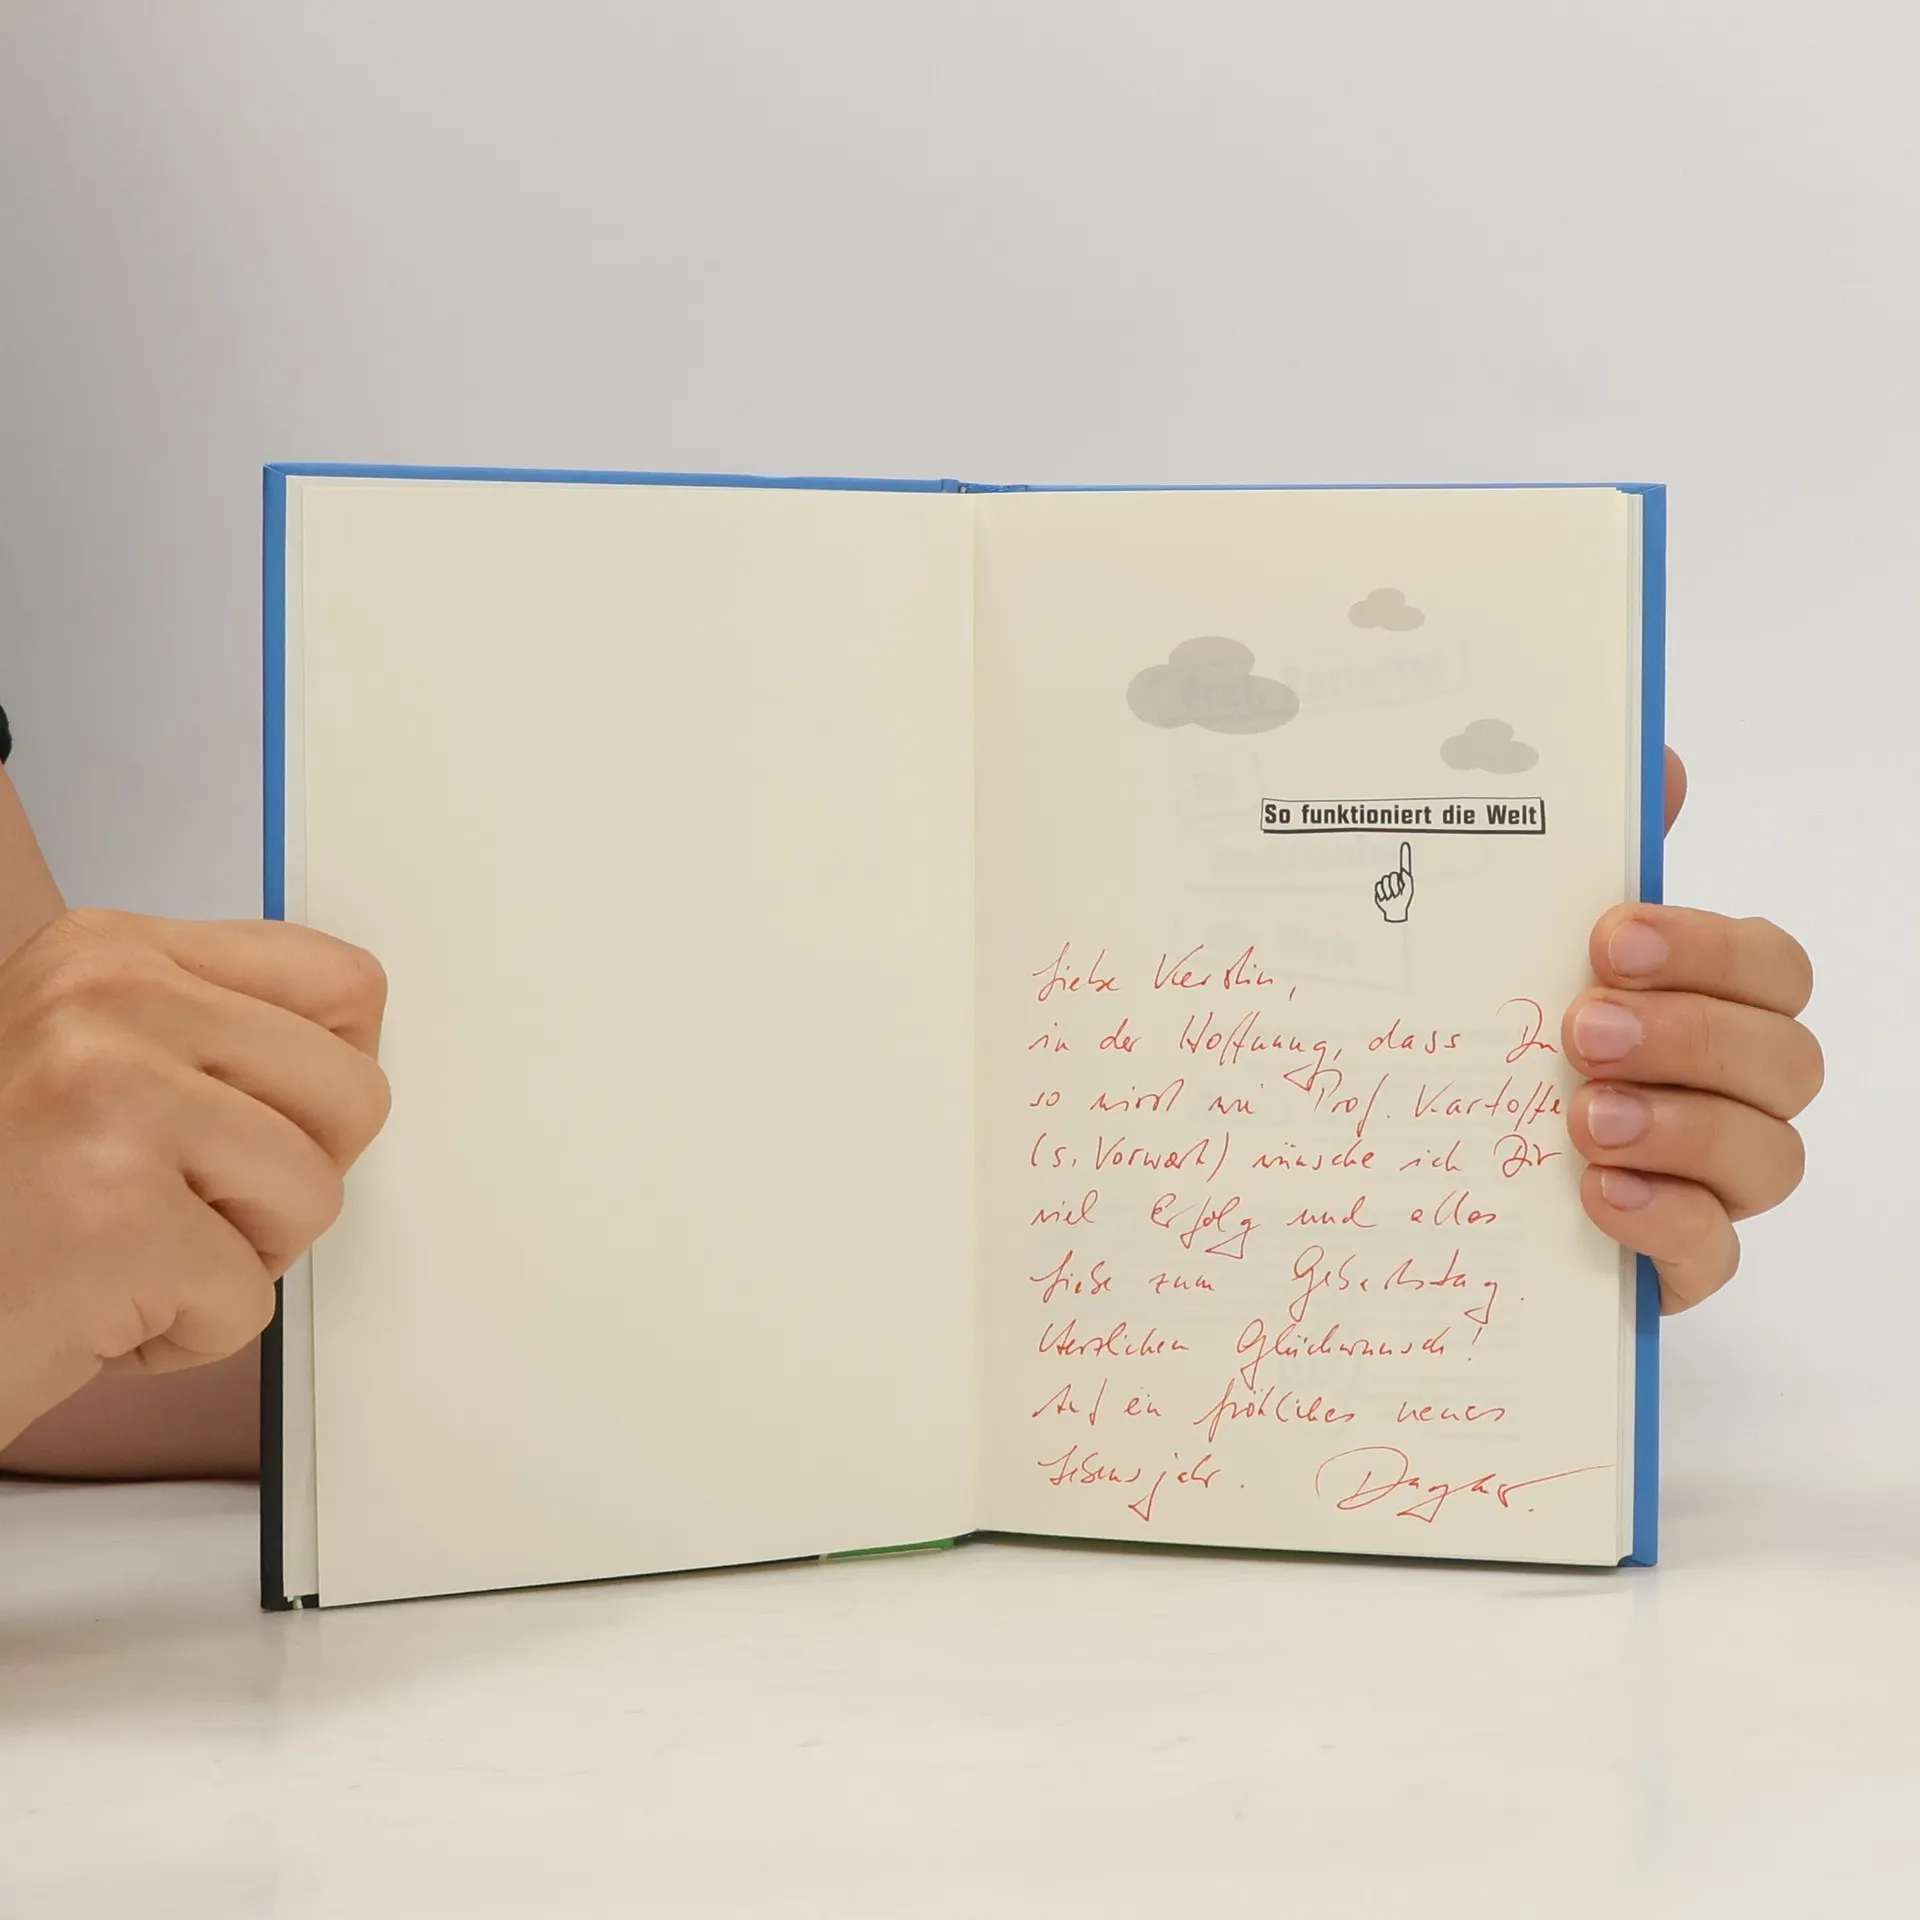 So funktioniert die Welt
Liebe Kerstin,
in der Hoffnung, dass Du
so wirst wie Prof. Kartoffe
(s. Vorwort) wünsche ich Dir
viel Erfolg und alles
Liebe zum Geburtstag.
Herzlichen Glückwunsch!
Auf ein fröhliches neues
Lebensjahr. Dagmar.